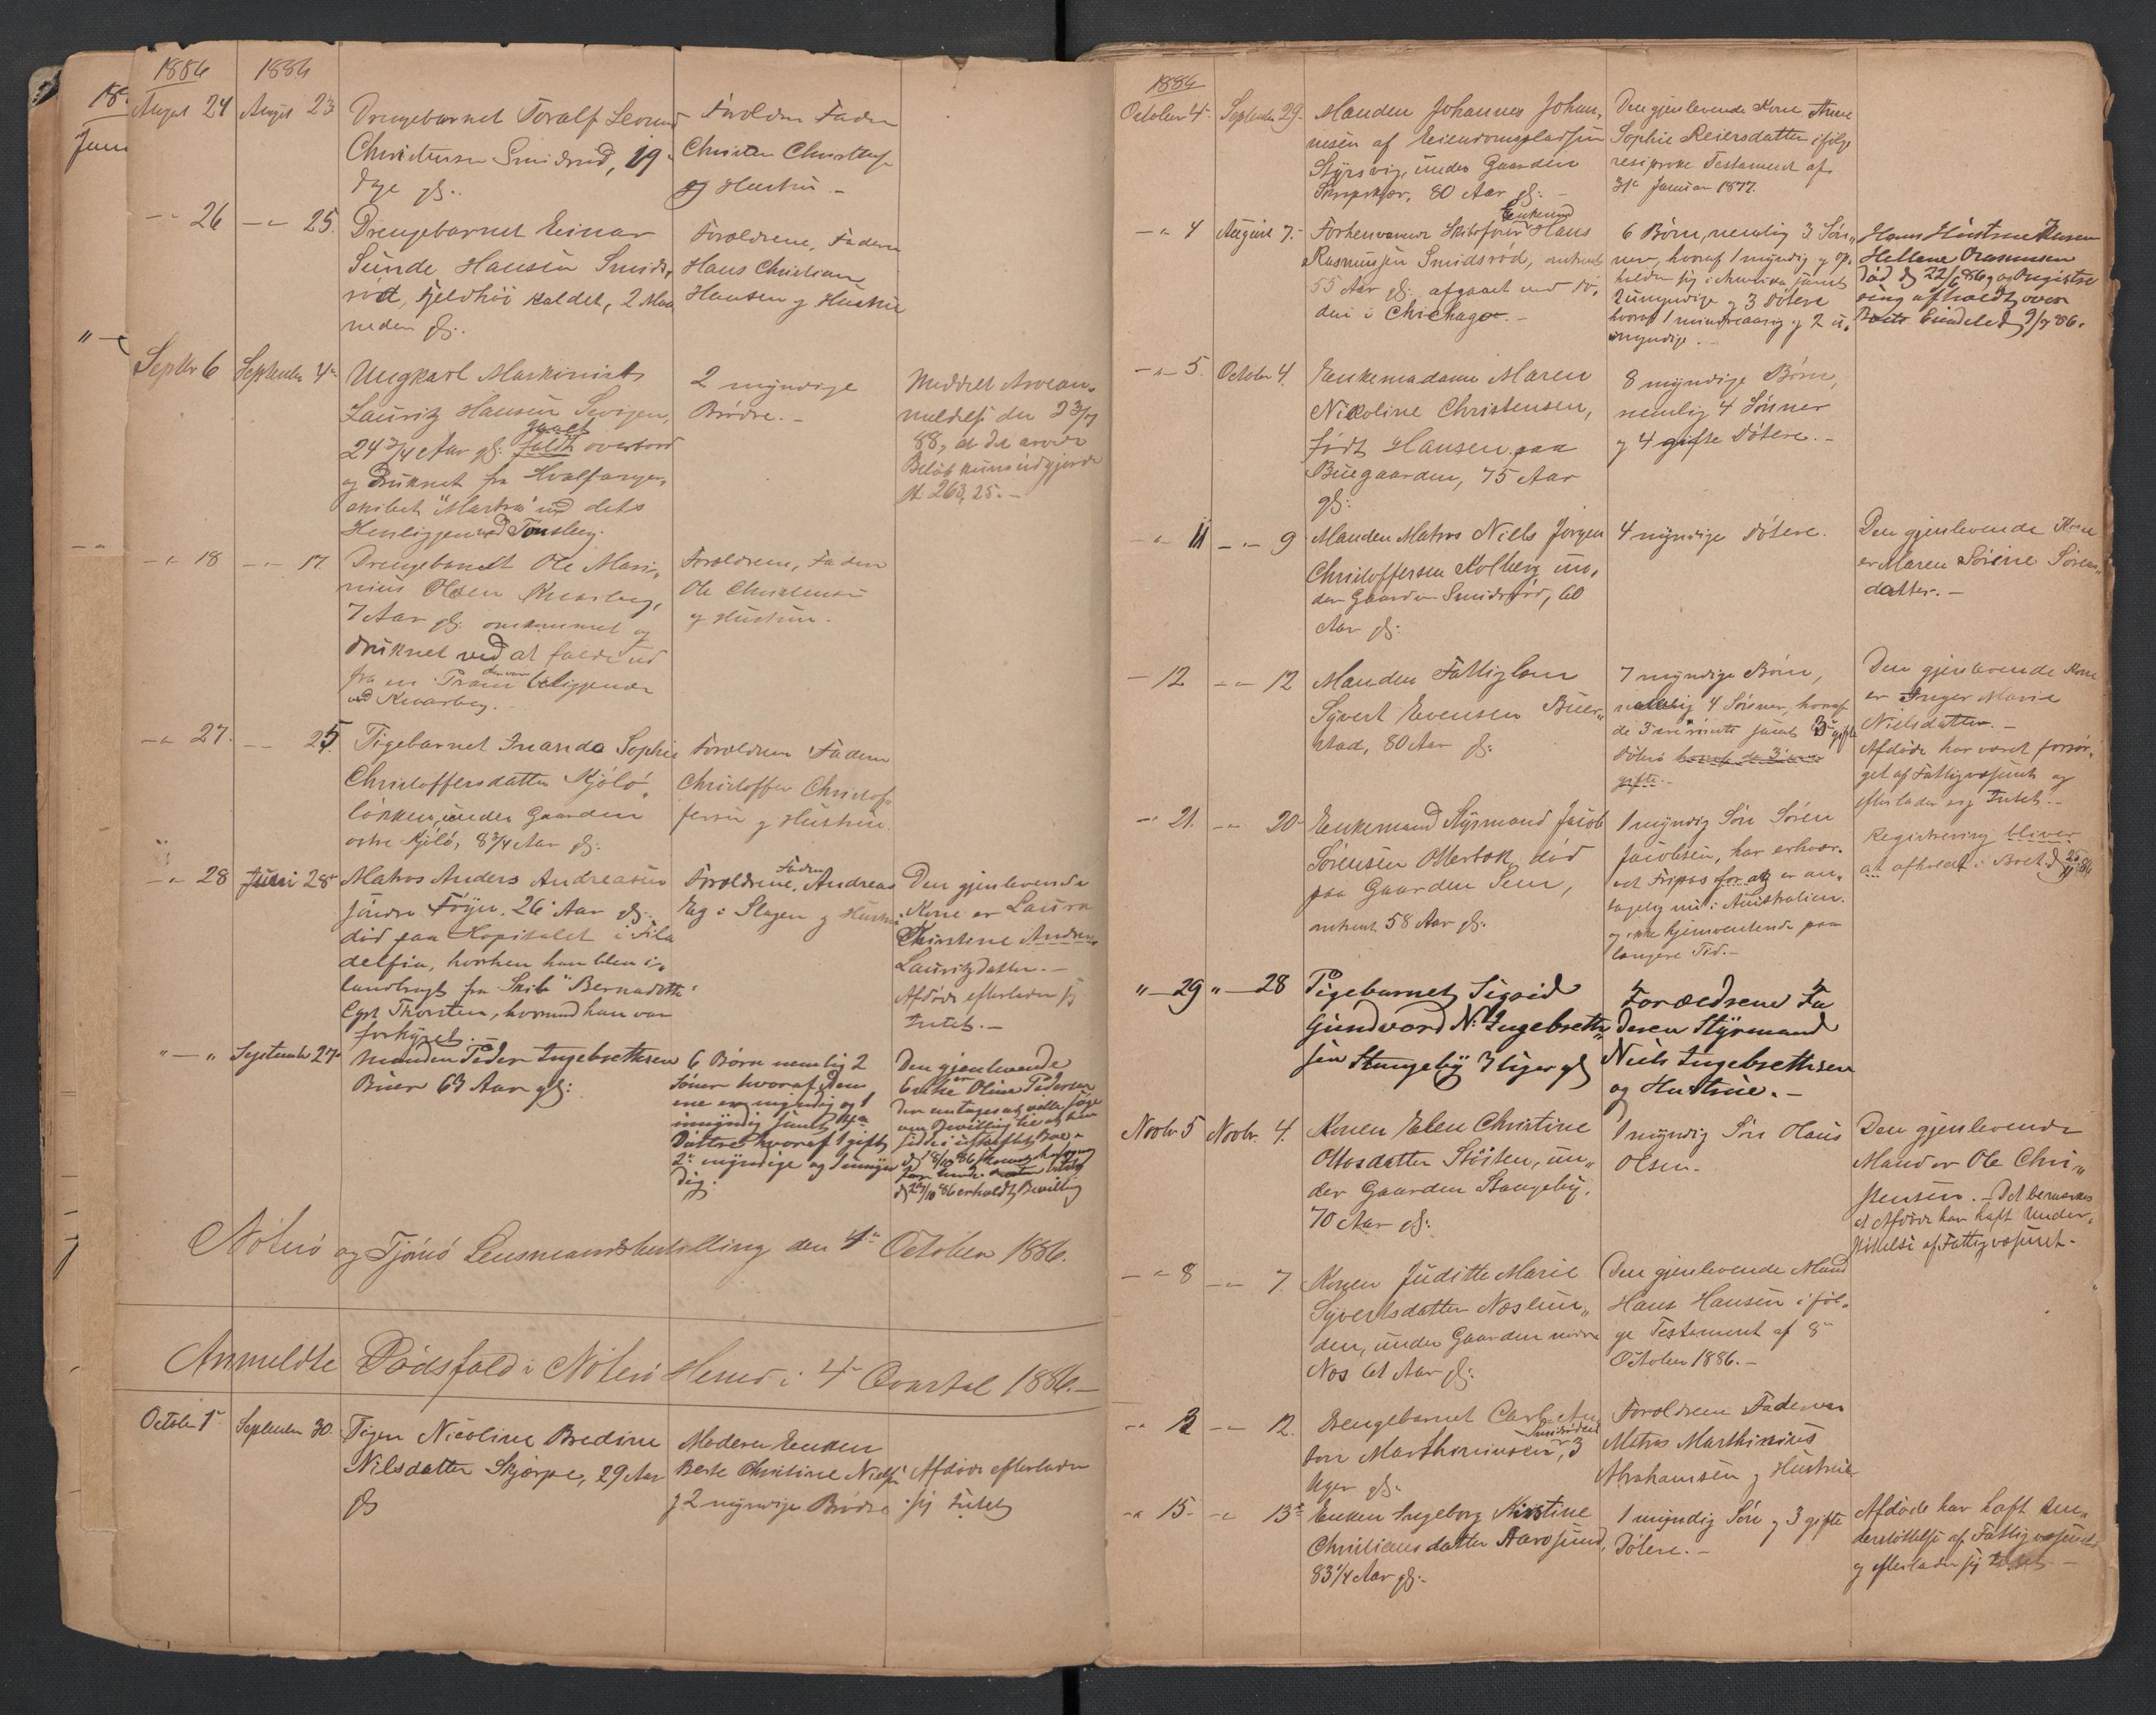 1886
1886
August 24
August 23
Drengebarnet Toralf Leonard
Christensen Smidsrød, 19
Dage gl:.
Forældrene Faderen
Christen Christensen
og Hustru. -
-"- 26
-"- 25.
Drengebarnet Einar
Sunde Hansen Smids-
rød, Fjeldhøi kaldet, 2 Maa
neder gl:.
Forældrene, Faderen
Hans Christian
Hansen og Hustru
Septbr 6
September 4de
Ungkarl Maskinist
Lauritz Hansen
24 3/4 Aar gl: faldt overbord
og druknet fra Hvalfanger-
skibet "Martha" ved dets
Henliggende ved Tønsberg.
2 myndige
Brødre. -
Meddelt Arvean-
meldelse den 23/7
88, at det arvede
Beløb kun udgjorde
263,25. -
-"- 18
-"- 17.
Drengebarnet Ole Mari-
nius Olsen Knarberg,
7 Aar gl: omkommet og
druknet ved at falde ud
fra en Pram beliggende
ved Knarberg.
Forældrene, Faderen
Ole Christensen
og Hustru.
-"- 27.
-"- 25.
Pigebarnet Inanda Sophie
Christoffersdatter Kjølø-
løkken, under Gaarden
østre Kjølø, 8 3/4 Aar gl:
Forældrene Faderen
Christoffer Christof-
fersen og Hustru.
-"- 28
Juni 28de
Matros Anders Andreasen
søndre Føyn, 26 Aar gl:
død paa Hospitalet i Fila
delfia, hvorhen han blev i-
landbragt fra Skib "Bernadotte"
Cpt Thorsten, hvormed han var
forhyret. -
Forældrene, Faderen Andreas
Eeg i Slagen og Hustru
Den gjenlevende
Kone er Laura
Christine
Lauritzdatter. -
Afdøde efterlader sig
Intet. -
"-"
September 27de
Manden Peder Ingebrethsen
Buer 63 Aar gl:
6 Børn nemlig 2
Sønner hvoraf den
ene er myndig og 1
umyndig samt 4
Døttre hvoraf 1 gift
2 myndige og 1 umyn
dig.
Den gjenlevende
Enke er Oline Pedersen
der antages at ville søge
om Bevilling til at hen
sidde i uskiftet Bo. -
d 27/10 86 erholdt Bevilling
Nøterø og Tjømø Lensmandsbestilling den 4de October 1886.
Anmeldte Dødsfald i Nøterø Herred i 4de Qvartal 1886. -
October 1ste
September 30.
Pigen Nicoline Bredine
Nilsdatter Skjærpe, 29 Aar
gl:
Moderen Enken
Berte Christine Nielsen
og 2 myndige Brødre
Afdøde efterlader
sig Intet
1886
October 4de
September 29.
Manden Johannes Johan-
nesen af Eiendomspladsen
Styrsvig, under Gaarden
80 Aar gl: -
Den gjenlevende Kone Anne
Sophie Reiersdatter ifølge
resiproke Testament af
31te Januar 1877.
-"- 4
August 7.
Forhenværende Skibsfører Enkemand Hans
Rasmussen Smidsrød, omtrent
55 Aar gl: afgaaet ved Dø-
den i Chichago. -
6 Børn, nemlig 3 Søn-
ner, hvoraf 1 myndig og op-
holder sig i Amerika samt
2 umyndige og 3 Døtere
hvoraf 1 mindreaarig og 2 u-
myndige. -
Hans Hustrue
Hellene Rasmussen
død d 22/6 86 og Registre
ring afholdt over
Boets Eiendele d 9/7 86.
-"- 5.
October 4.
Enkemadame Maren
Nicoline Christensen,
født Hansen paa
Buegaarden, 75 Aar
gl:
8 myndige Børn,
nemlig 4 Sønner
og 4 gifte Døtere. -
-"- 11
-"- 9
Manden Matros Niels Jørgen
Christoffersen Kolberg un-
der Gaarden Smidsrød, 60
Aar gl:
4 myndige Døtere.
Den gjenlevende Kone
er Maren Sørine Søren-
datter. -
- 12
-"- 12
Manden Fattiglem
Syvert Evensen Buer-
stad, 80 Aar gl:
7 myndige Børn,
nemlig 4 Sønner, hvoraf
de 3 samt 3 gifte
Døtere hvoraf de 3 ere
gifte. -
Den gjenlevende Kone
er Inger Marie
Nielsdatter. -
Afdøde har været forsør-
get af Fattigvæsenet og
efterlader sig Intet. -
-"- 21.
-"- 20
Enkemand Styrmand Jacob
Sørensen Otterbæk, død
paa Gaarden Sem,
omtrent 58 Aar gl:
1 myndig Søn Søren
Jacobsen, har erhver-
vet Fripas for at er an-
tagelig nu i Australien
og ikke hjemventende paa
længere Tid. -
Registrering bliver
at afholde i Boet d 25/11 86
"-29
"-28
Pigebarnet Sigrid
Gundvord N. Ingebreth-
sen Stangeby 3 Uger gl
Forældrene Fa
deren Styrmand
Niels Ingebrethsen
og Hustrue. -
Novbr 5
Novbr. 4.
Konen Elen Christine
Ottosdatter Støiten, un-
der Gaarden Stangeby,
70 Aar gl:
1 myndig Søn Hans
Olsen.
Den gjenlevende
Mand er Ole Chri-
stensen. - Det bemærkes
at Afdøde har haft Under-
støttelse af Fattigvæsenet. -
-"- 8
-"- 7.
Konen Juditte Marie
Syvertsdatter Næslun-
den, under Gaarden nordre
Næs 61 Aar gl:
Den gjenlevende Mand
Hans Hansen i føl-
ge Testament af 8de
October 1886. -
-"- 13
-"- 12.
Drengebarnet Carl An-
ton Marthiniussen Smidsrød, 3
Uger gl.
Forældrene Faderen
Matros Marthinius
Abrahamsen og Hustrue
-"- 15-
-"- 13de
Enken Ingeborg Kirstine
Christiansdatter Aarøsund,
83 1/4 Aar gl: -
1 myndig Søn og 3 gifte
Døtere. -
Afdøde har haft Un-
derstøttelse af Fattigvæsenet
og efterlader sig Intet -